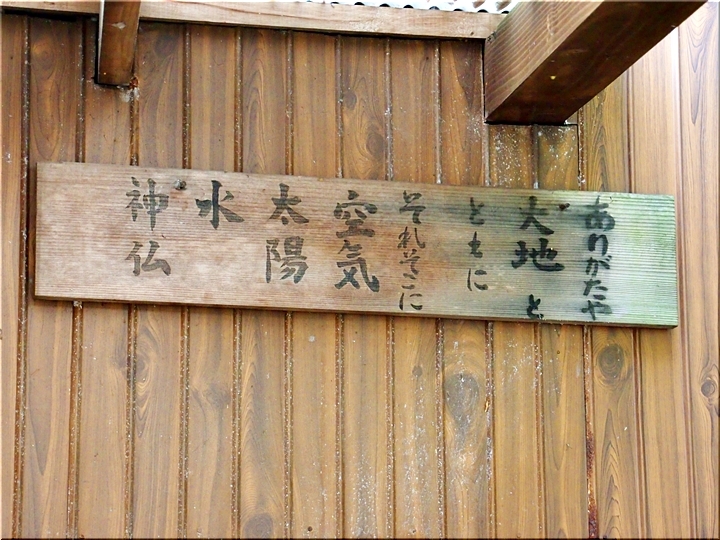 ありがたや
大地と
ともに
それそこに
空気
太陽
水
神仏